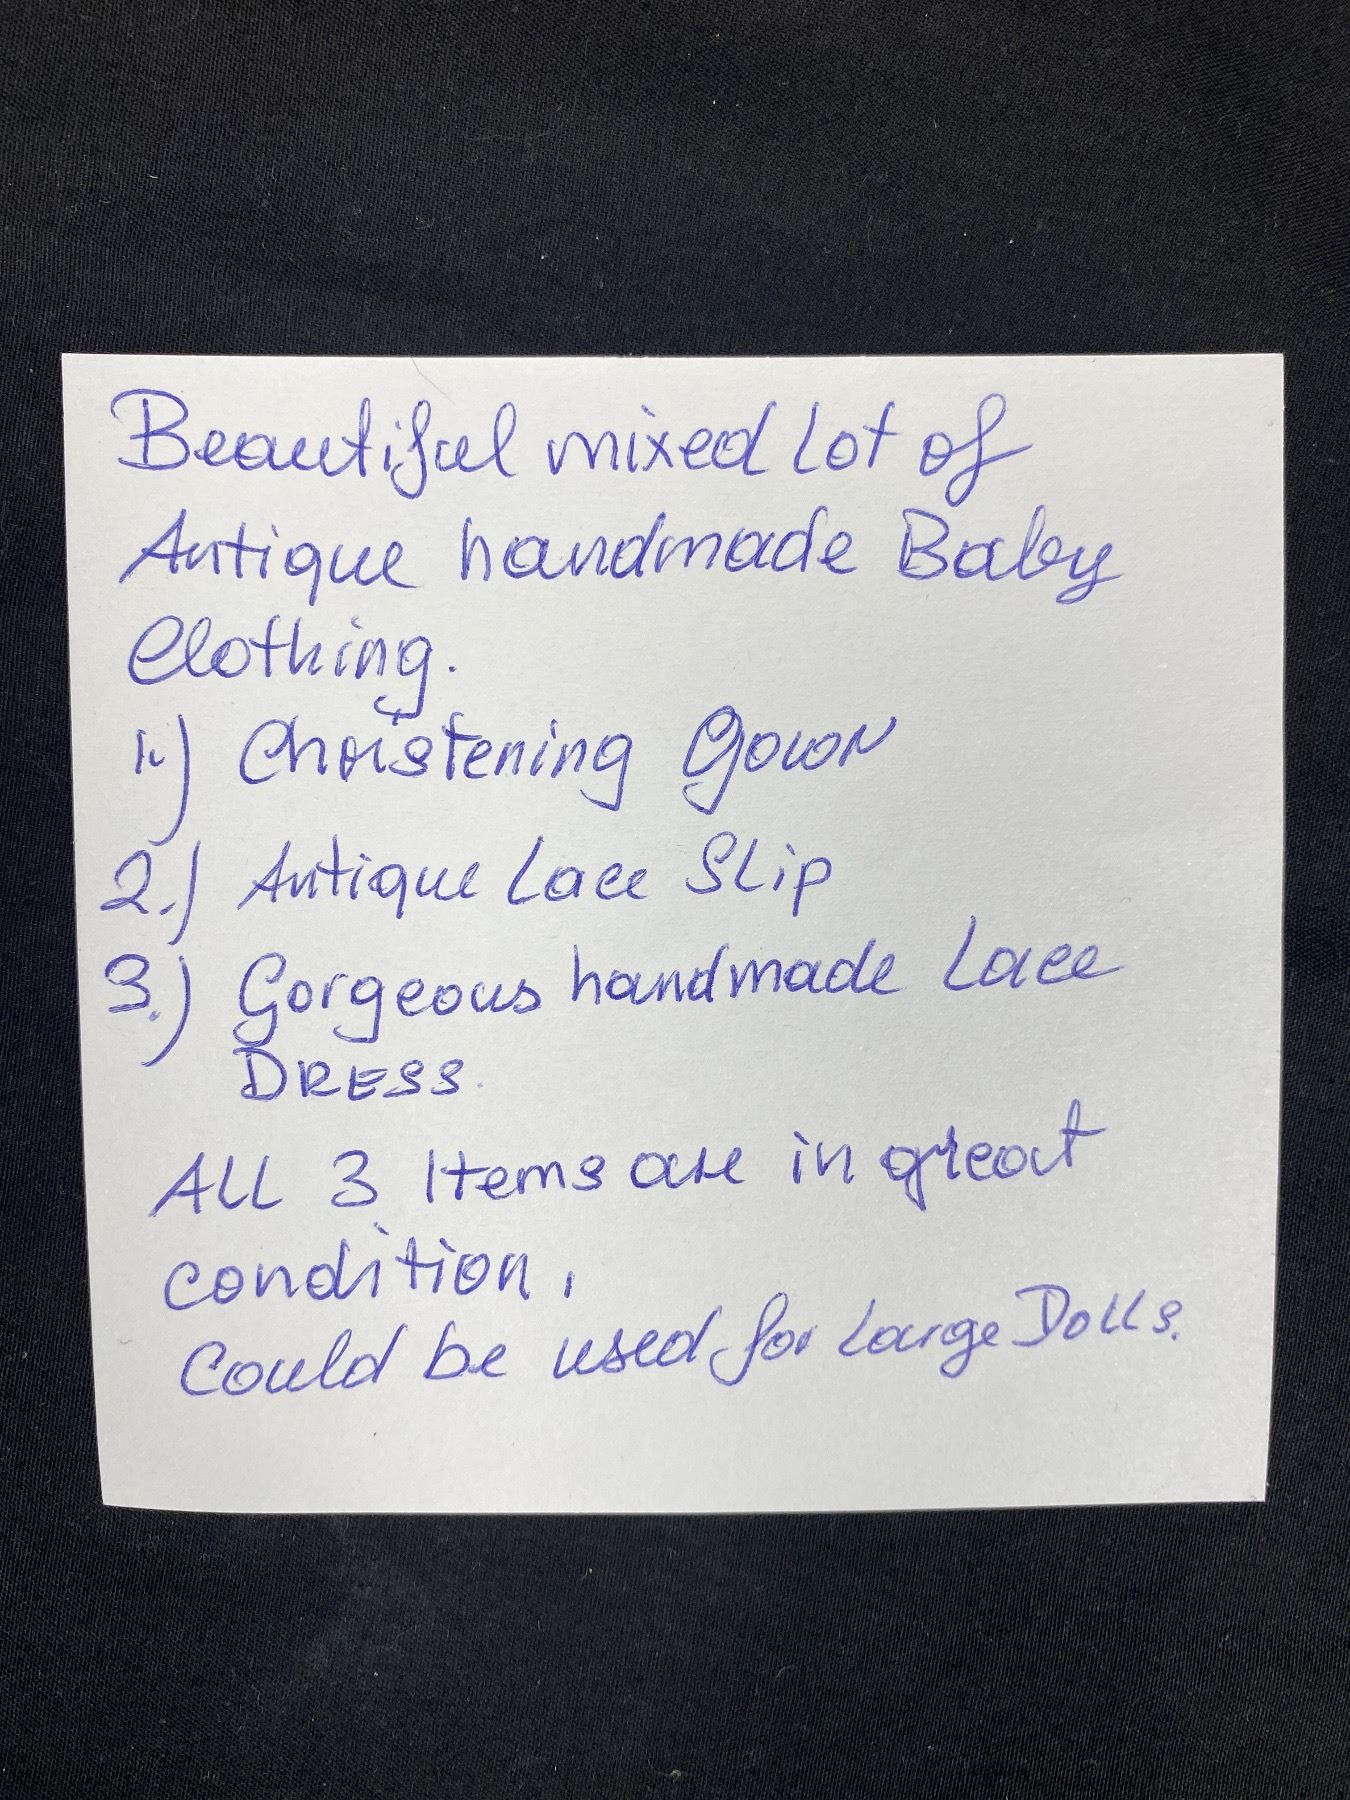 Beautiful mixed Lot of
Antique handmade Baby
Clothing.
1.) Christening Gown
2.) Antique Lace Slip
3.) Gorgeous handmade Lace
DRESS.
ALL 3 Items are in great
condition.
Could be used for Large Dolls.